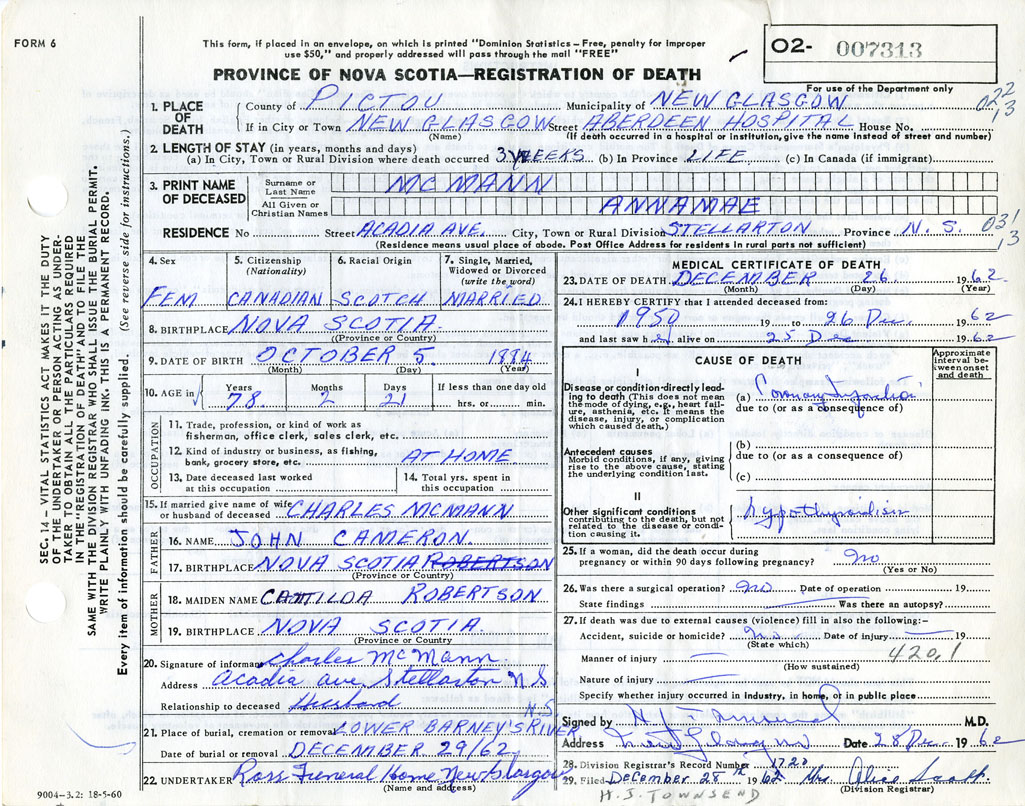 FORM 6
This form, if placed in an envelope, on which is printed "Dominion Statistics – Free, penalty for improper
use $50," and properly addressed will pass through the mail "FREE"
O2- 007313
PROVINCE OF NOVA SCOTIA—REGISTRATION OF DEATH
For use of the Department only
022
13
1. PLACE OF DEATH County of PICTOU Municipality of NEW GLASGOW
If in City or Town NEW GLASGOW Street ABERDEEN HOSPITAL House No.
(Name) (If death occurred in a hospital or institution, give the name instead of street and number)
2. LENGTH OF STAY (in years, months and days)
(a) In City, Town or Rural Division where death occurred 3 WEEKS (b) In Province LIFE (c) In Canada (if immigrant)
3. PRINT NAME OF DECEASED Surname or Last Name MCMANN
All Given or Christian Names ANNAMAE
RESIDENCE No Street ACADIA AVE. City, Town or Rural Division STELLARTON Province N. S. 031
13
(Residence means usual place of abode. Post Office Address for residents in rural parts not sufficient)
SEC. 14 – VITAL STATISTICS ACT MAKES IT THE DUTY
OF THE UNDERTAKER OR PERSON ACTING AS UNDER-
TAKER TO OBTAIN ALL THE PARTICULARS REQUIRED
IN THE "REGISTRATION OF DEATH" AND TO FILE THE
SAME WITH THE DIVISION REGISTRAR WHO SHALL ISSUE THE BURIAL PERMIT.
WRITE PLAINLY WITH UNFADING INK. THIS IS A PERMANENT RECORD.
Every item of information should be carefully supplied. (See reverse side for instructions.)
4. Sex 5. Citizenship (Nationality) 6. Racial Origin 7. Single, Married, Widowed or Divorced (write the word)
FEM CANADIAN SCOTCH MARRIED
8. BIRTHPLACE NOVA SCOTIA.
(Province or Country)
9. DATE OF BIRTH OCTOBER 5 1884
(Month) (Day) (Year)
10. AGE in Years Months Days If less than one day old
78 2 21 hrs. or min.
OCCUPATION
11. Trade, profession, or kind of work as
fisherman, office clerk, sales clerk, etc.
12. Kind of industry or business, as fishing,
bank, grocery store, etc. AT HOME.
13. Date deceased last worked at this occupation
14. Total yrs. spent in this occupation
15. If married give name of wife or husband of deceased CHARLES MCMANN
FATHER
16. NAME JOHN CAMERON.
17. BIRTHPLACE NOVA SCOTIA ROBERTSON
(Province or Country)
MOTHER
18. MAIDEN NAME ROBERTSON
19. BIRTHPLACE NOVA SCOTIA.
(Province or Country
20. Signature of informant Charles McMann.
Address Acadia ave, Stellarton N.S
Relationship to deceased Husband
N.S.
21. Place of burial, cremation or removal LOWER BARNEY'S RIVER
Date of burial or removal DECEMBER 29/62
22. UNDERTAKER Ross Funeral Home New Glasgow
(Name and address)
9004-3.2: 18-5-60
MEDICAL CERTIFICATE OF DEATH
23. DATE OF DEATH DECEMBER 26 1962
(Month) (Day) (Year)
24. I HEREBY CERTIFY that I attended deceased from:
1950 19 to 26 Dec 1962
and last saw h er alive on 25 Dec 1962
CAUSE OF DEATH
Approximate interval be- tween onset and death
I
Disease or condition directly lead-
ing to death (This does not mean
the mode of dying, e.g., heart fail-
ure, asthenia, etc. It means the
disease, injury, or complication
which caused death.)
(a) Coronary
due to (or as a consequence of)
(b)
due to (or as a consequence of)
Antecedent causes
Morbid conditions, if any, giving
rise to the above cause, stating
the underlying condition last.
(c)
II
Other significant conditions
contributing to the death, but not
related to the disease or condi-
tion causing it.
Hypothyroidism
25. If a woman, did the death occur during
pregnancy or within 90 days following pregnancy? No
(Yes or No)
26. Was there a surgical operation? No Date of operation 19
State findings Was there an autopsy?
27. If death was due to external causes (violence) fill in also the following:-
Accident, suicide or homicide? No Date of injury 19
(State which)
420.1
Manner of injury
(How sustained)
Nature of injury
Specify whether injury occurred in industry, in home, or in public place
Signed by H J Townsend M.D.
Address New Glasgow Date 28 Dec 1962
28. Division Registrar's Record Number 1720
29. Filed December 28th 1962 Mrs. Alice
(Division Registrar)
H. J. TOWNSEND